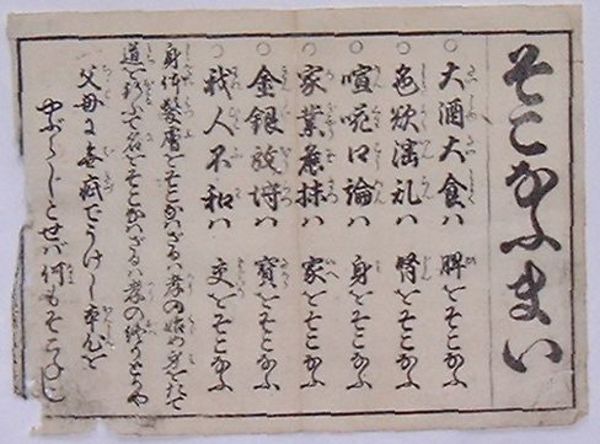 そこなふまい
○大酒大食ハ 脾をそこなふ
○色欲滛乱ハ 腎をそこなふ
○喧嘩口論ハ 身をそこなふ
○家業麁抹ハ 家をそこなふ
○金銀放埒ハ 寳をそこなふ
○我人不和ハ 交をそこなふ
身体髪膚をそこなハざるハ孝の始め身をたて
道を行ふて名をそこなハざるハ孝の終りとかや
父母に無疵でうけし本心を
やぶらじとせば何もそこなし